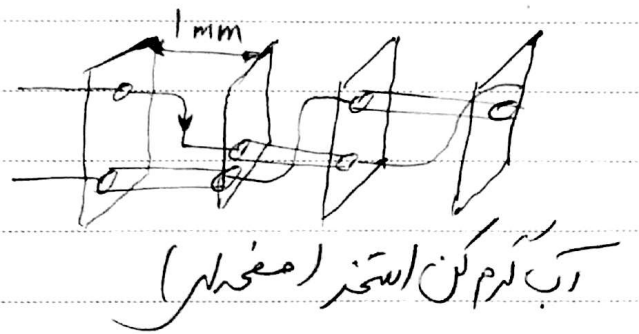 1 mm
آب گرم کن استخر (صفحه ای)